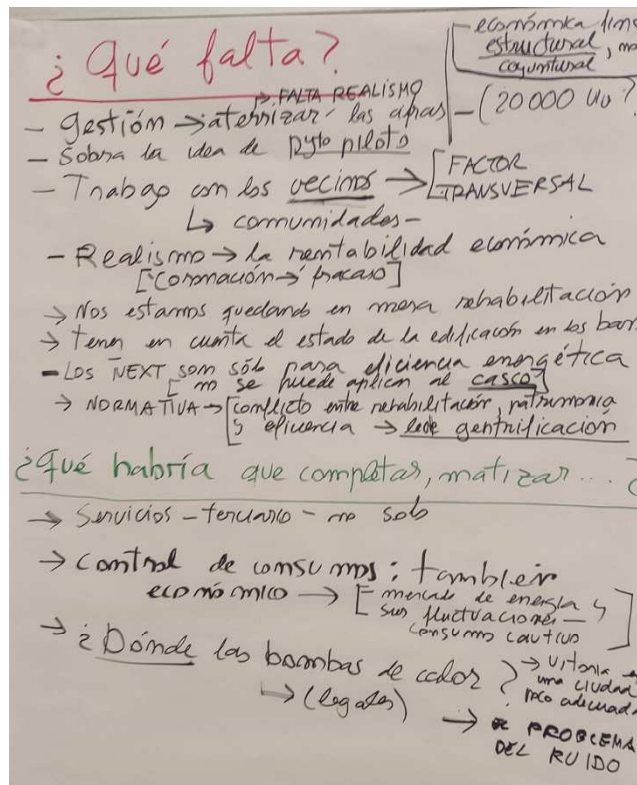 ¿Qué falta?
económica
estructural,
coyuntural
→ FALTA REALISMO
- gestión → aterrizar las
- (20000 viv?
- Sobra la idea de pyto piloto
- Trabajo con los vecinos → [FACTOR
TRANSVERSAL
↳ comunidades-
- Realismo → la rentabilidad económica
[Coronación → fracaso]
→ Nos estamos quedando en mera rehabilitación
→ Tener en cuenta el estado de la edificación en los
- Los NEXT son sólo para eficiencia energética
[no se puede aplicar al casco]
→ NORMATIVA → [conflicto entre rehabilitación, patrimonio
y eficiencia → gentrificación
¿Qué habría que completar, matizar... ?
→ Servicios - terciario - no solo
→ Control de consumos: también
económico → [mercado de energía y
sus fluctuaciones -
consumo cautivo]
→ ¿Dónde las bombas de calor? → Vitoria
una ciudad
poco adecuada
↳ (legales)
→ PROBLEMA
DEL RUIDO